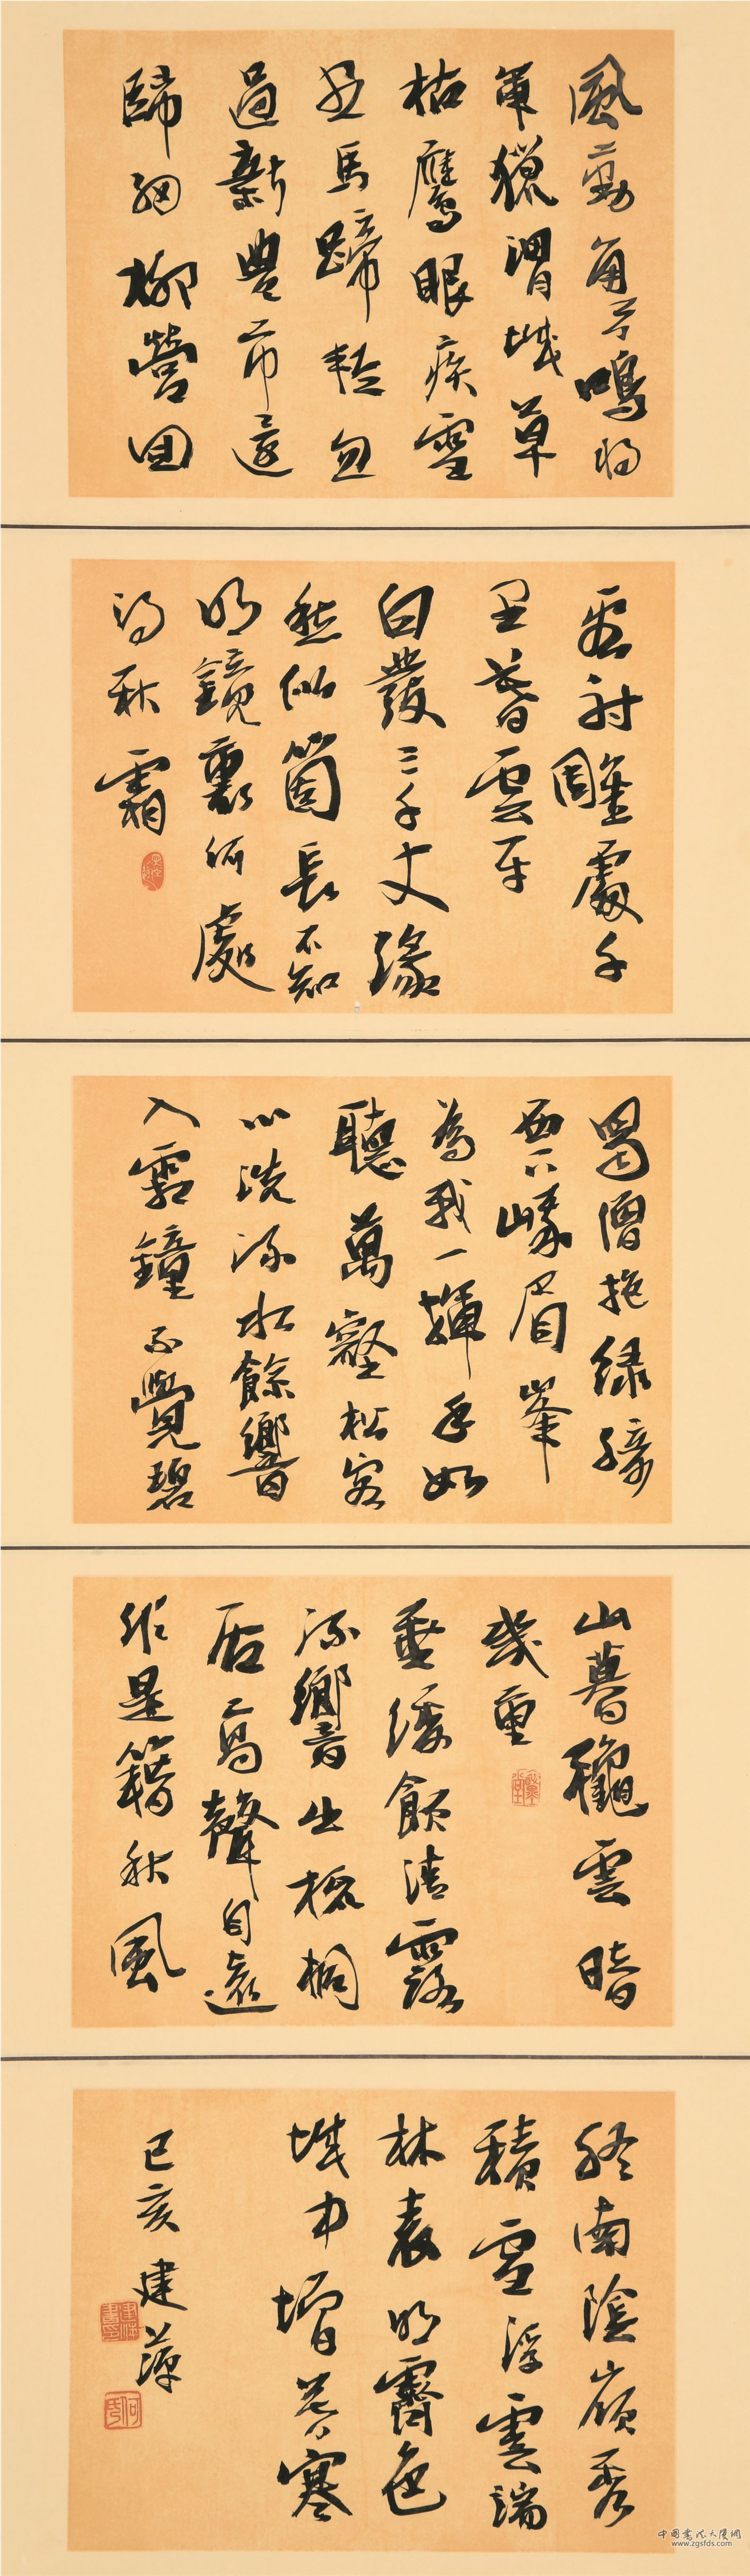 風勁角弓鳴將
軍獵渭城草
枯鷹眼疾雪
盡馬蹄輕忽
過新豐市還
歸細柳營回
看射雕處千
里暮雲平
白發三千丈緣
愁似箇長不知
明鏡裏何處
得秋霜
蜀僧抱綠綺
西下峨眉峯
為我一揮手如
聽萬壑松客
心洗流水餘響
入霜鐘不覺碧
山暮穐雲暗
幾重
垂緌飲清露
流響出疏桐
居高聲自遠
非是籍秋風
終南陰嶺秀
積雪浮雲端
林表明霽色
城中增暮寒
己亥建
何氏
中国書法大廈網
www.zgsfds.com